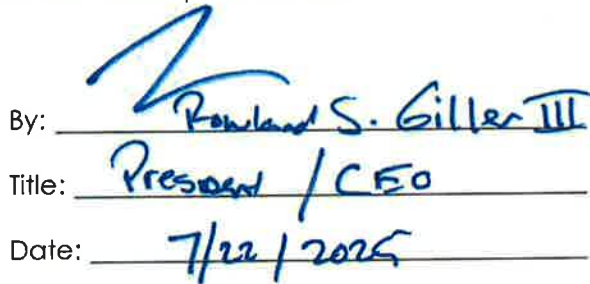 By: Rowland S. Giller III
Title: President / CEO
Date: 7/22/2025